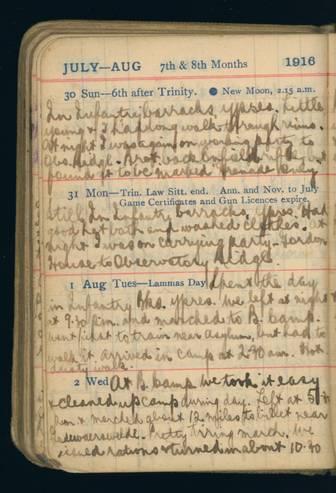 JULY—AUG 7th & 8th Months 1916
30 Sun—6th after Trinity. ● New Moon, 2.15 a.m.
In Infantry barracks, Ypres. Little
young & I had long walk through ruins.
At night I was again on working party to
Obs. Ridge. Brot. back
found it to be marked
31 Mon—Trin. Law Sitt. end. Ann. and Nov. to July
Game Certificates and Gun Licences expire.
Still in Infantry barracks, Ypres. Had
good hot bath and washed clothes. At
night I was on carrying party. Gordon
House to Observatory Ridge.
1 Aug Tues—Lammas Day Spent the day
in Infantry Bks. Ypres. We left at night
at 9.30 p.m. and marched to B. Camp.
went first to train near Asylum, but had to
walk it. arrived in camp at 2.30 am. Hot
dusty walk.
2 Wed At B. Camp. We took it easy
& cleaned up camp during day. Left at
pm & marched about 12 miles to billet near
Pretty tiring march. We
issued rations & turned in about 10.30